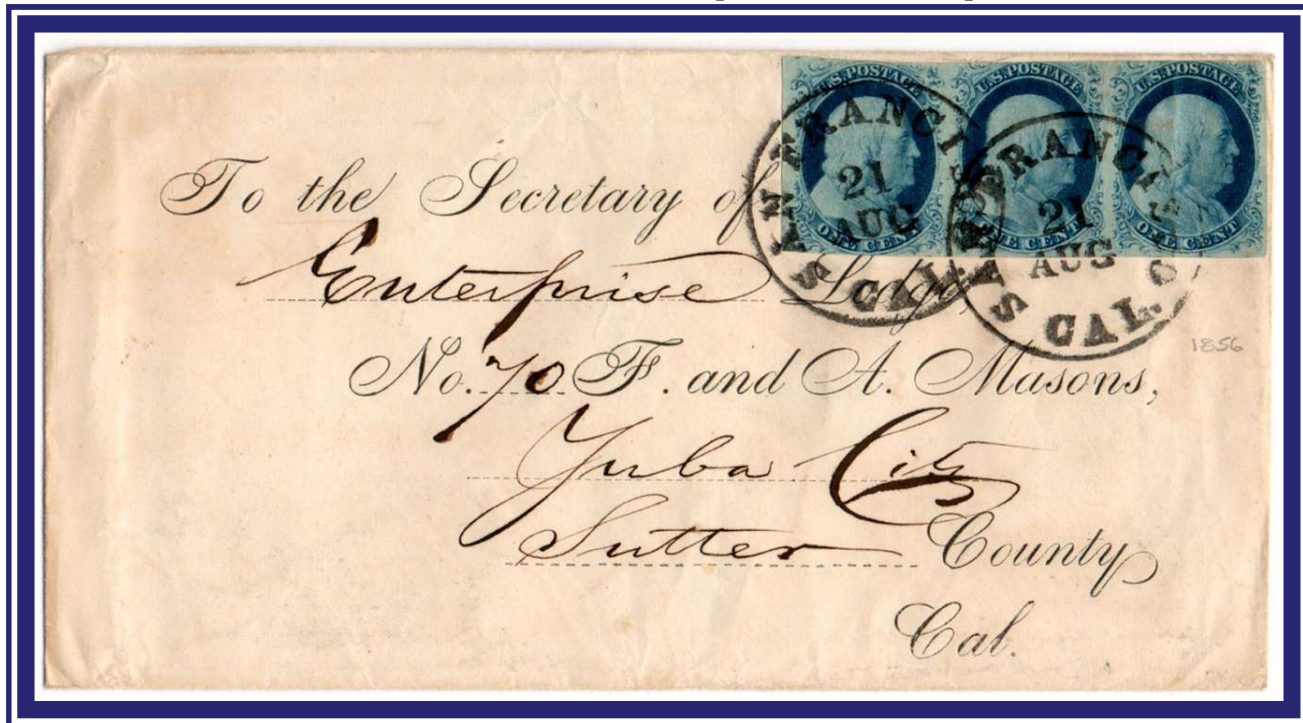 U.S. POSTAGE U.S. POSTAGE U.S. POSTAGE
ONE CENT ONE CENT ONE CENT
SAN FRANCISCO 21 AUG CAL.
SAN FRANCISCO 21 AUG CAL.
To the Secretary of
Enterprise Lodge,
1856
No. 70 F. and A. Masons,
Yuba City
Sutter County
Cal.